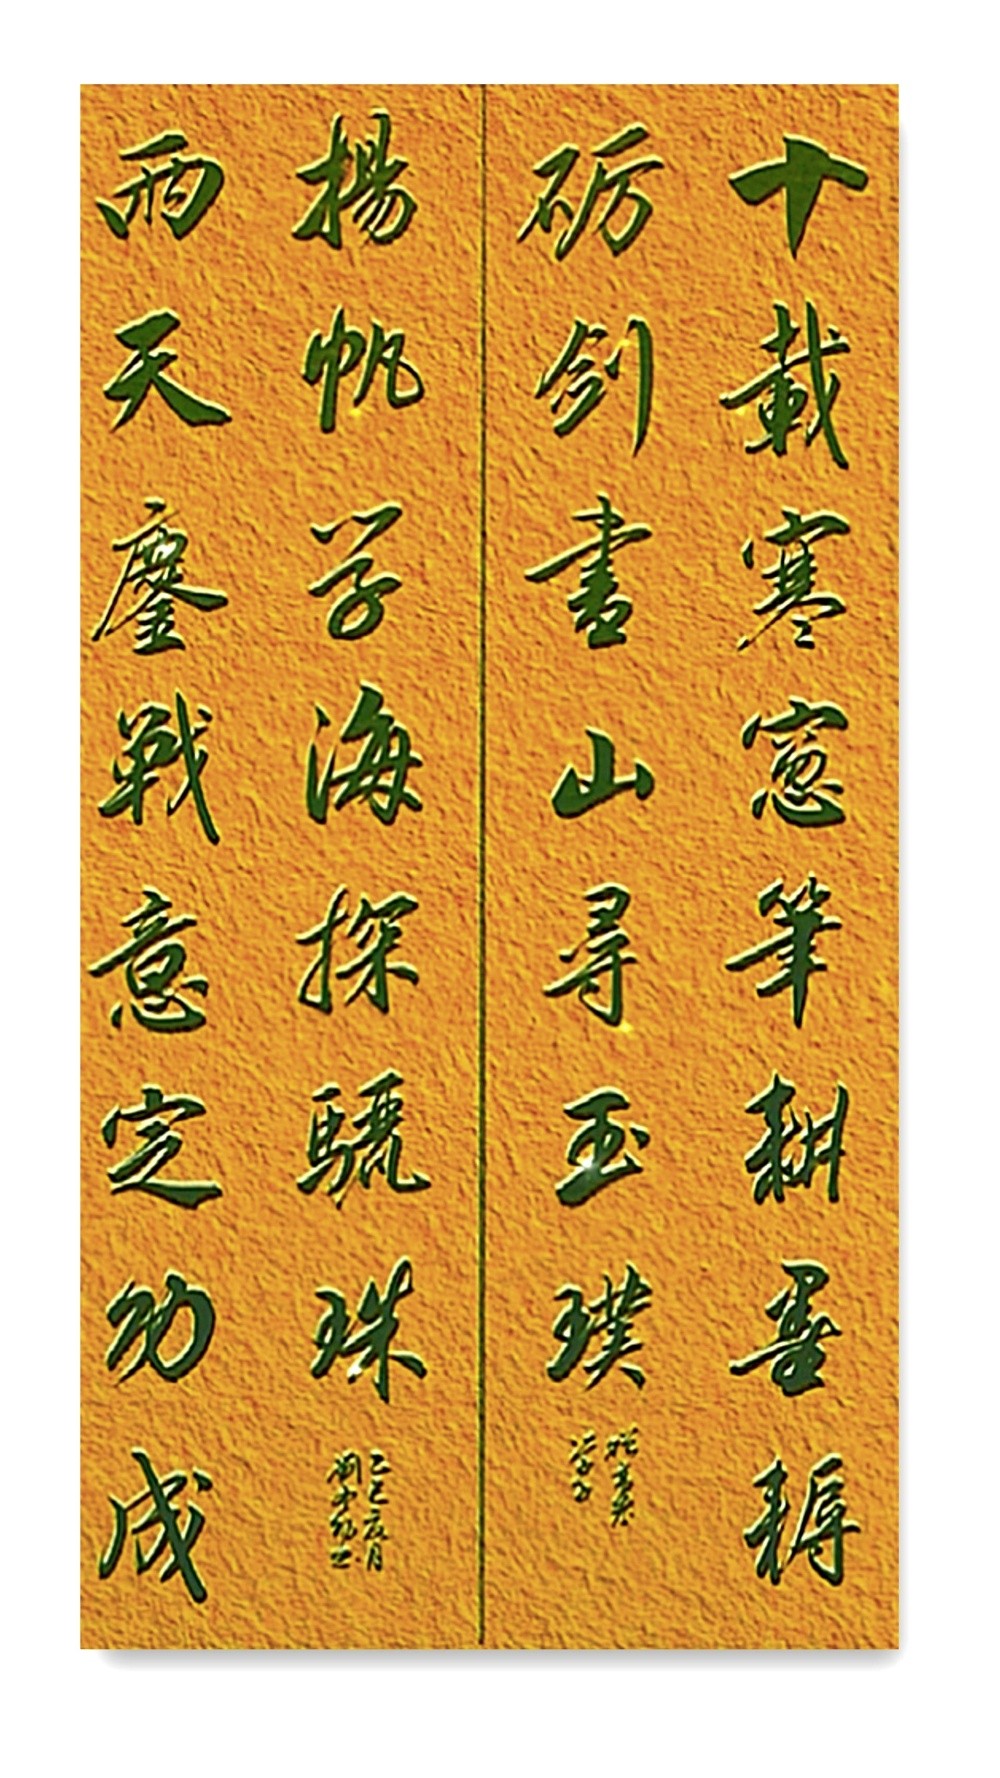 十載寒窓筆耕墨耨
砺剑書山尋玉璞
两天鏖戰意定功成
揚帆学海探驪珠
乙巳